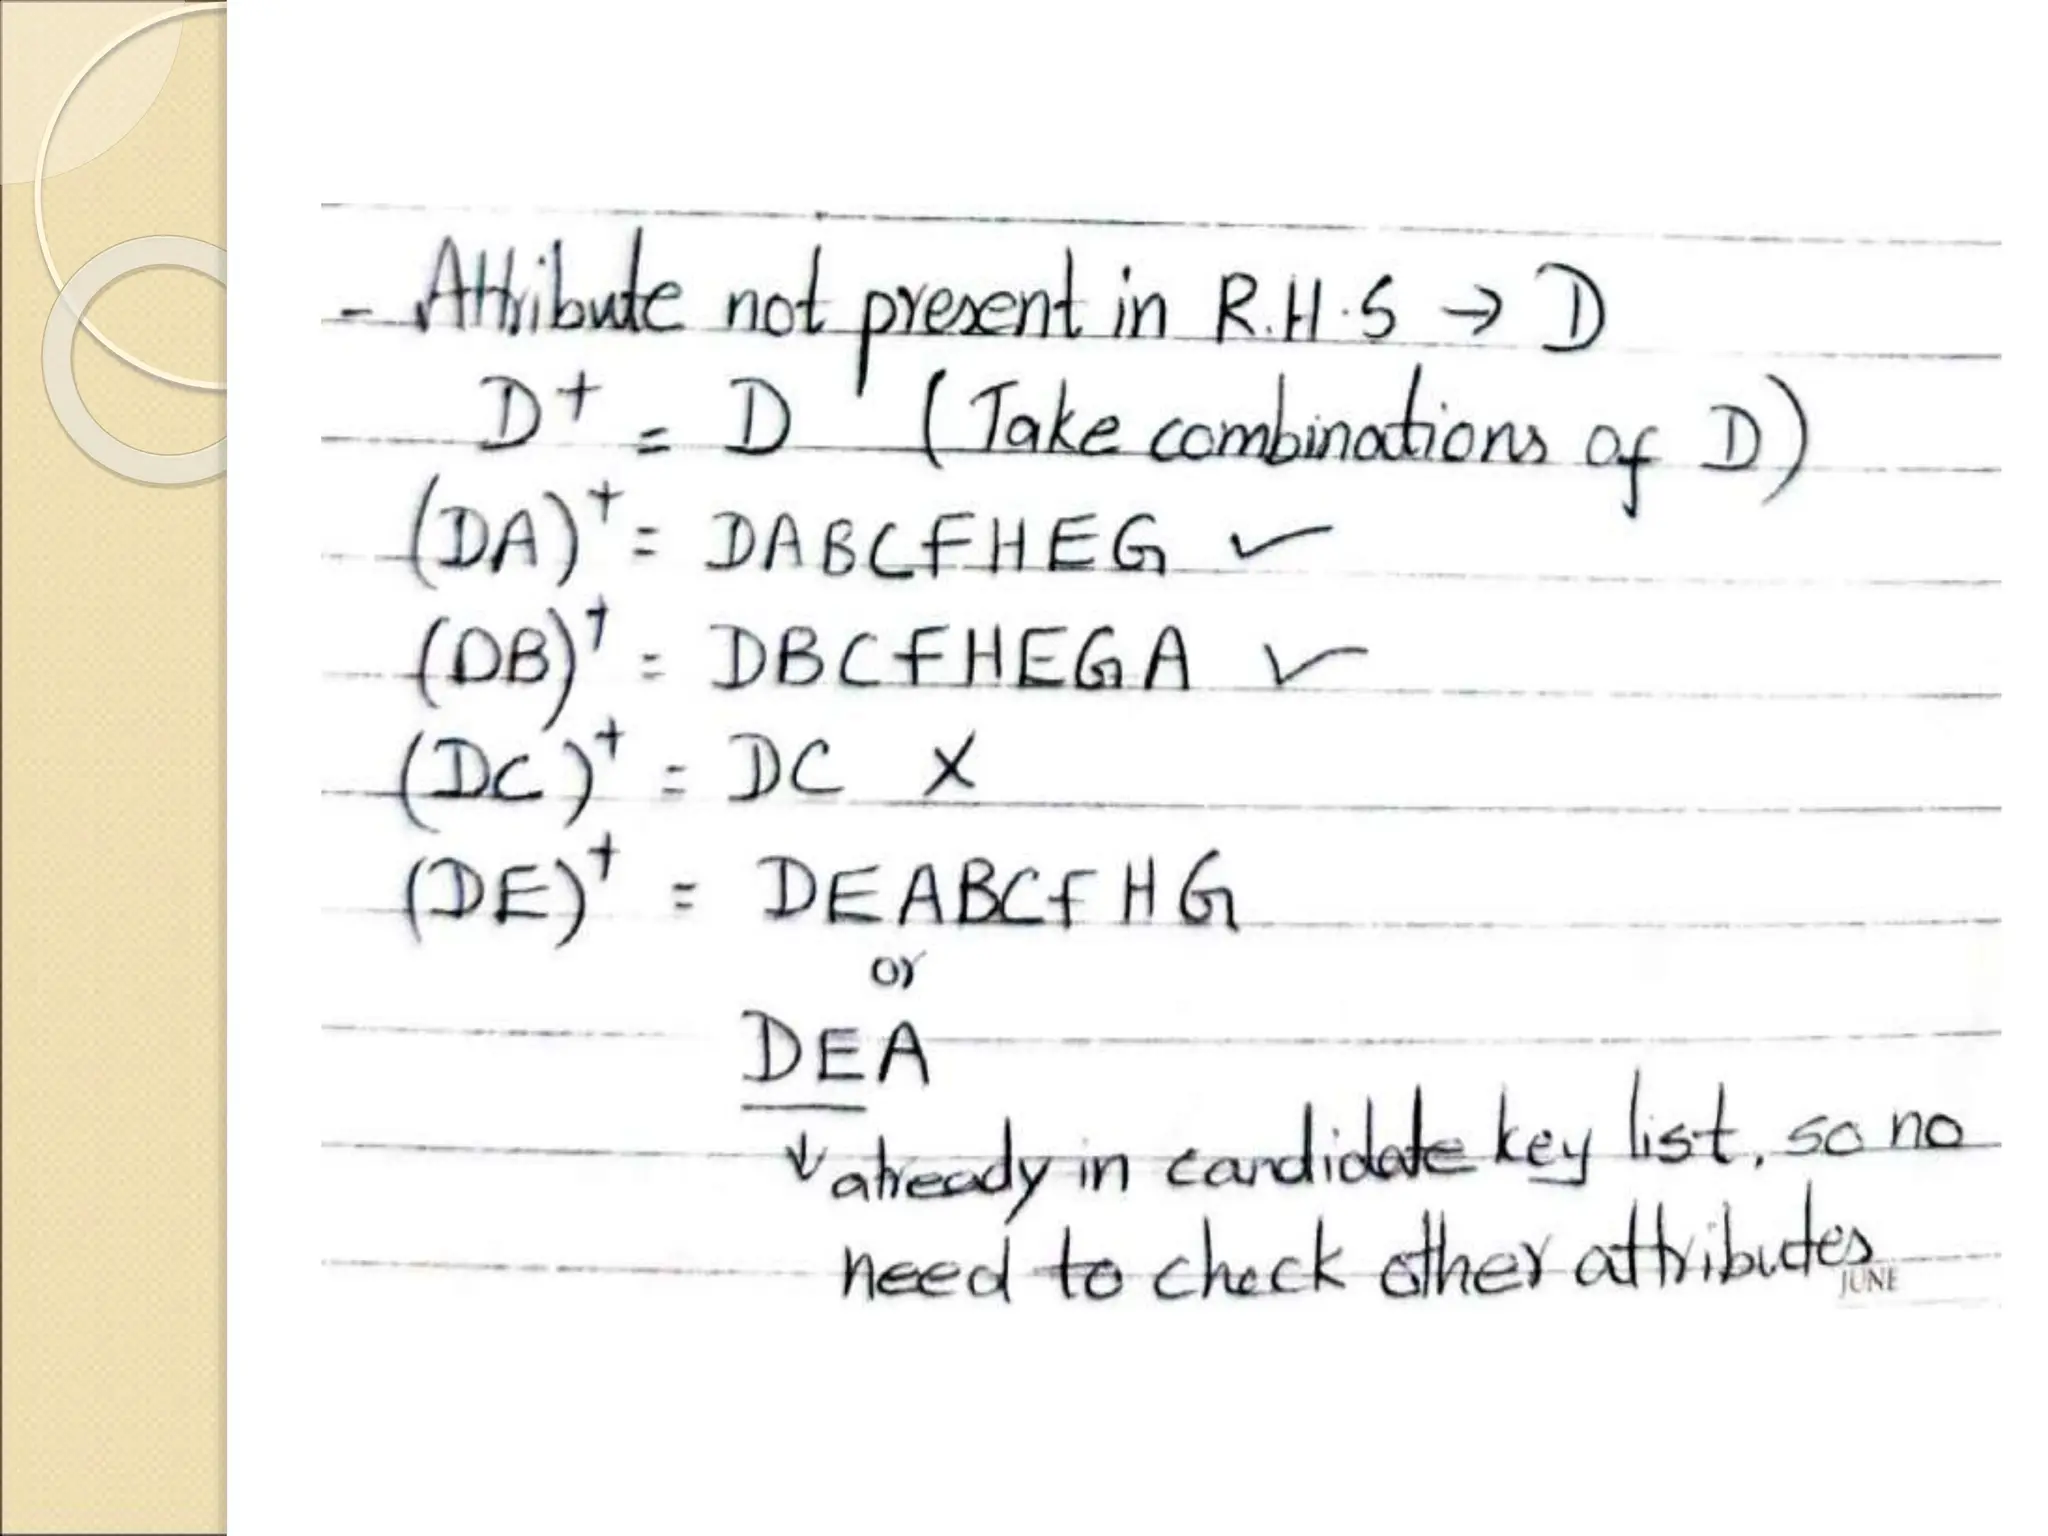 - Attribute not present in R.H.S → D
D⁺ = D (Take combinations of D)
(DA)⁺ = DABCFHEG ✓
(DB)⁺ = DBCFHEGA ✓
(DC)⁺ = DC X
(DE)⁺ = DEABCFHG
or
DEA
↓ already in candidate key list, so no
need to check other attributes
JUNE